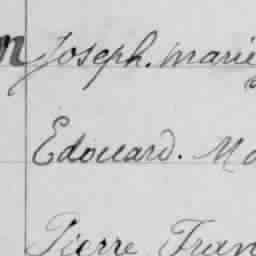 Joseph. marie
Edouard. Ma
Pierre Fran